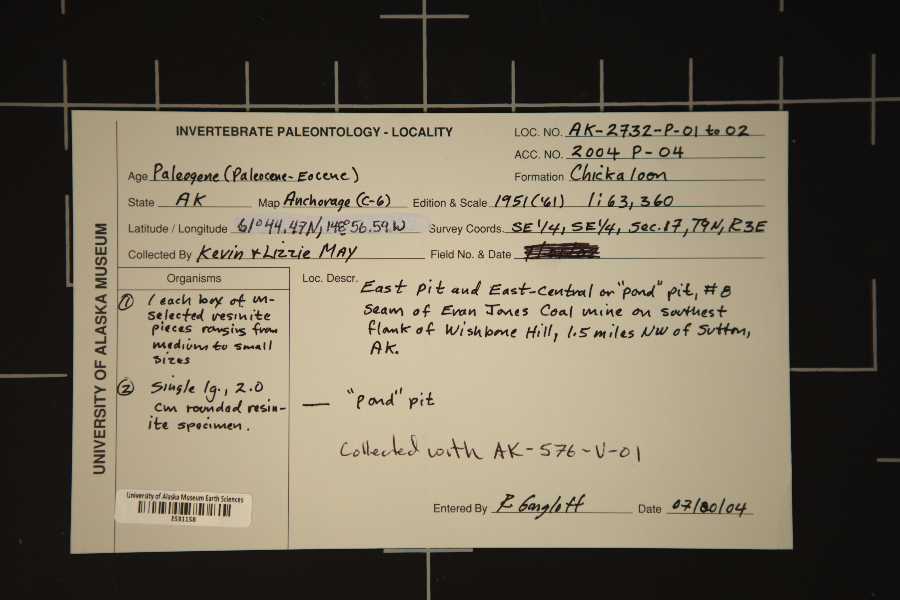 INVERTEBRATE PALEONTOLOGY - LOCALITY
LOC. NO. AK-2732-P-01 to 02
ACC. NO. 2004 P-04
Age Paleogene (Paleocene-Eocene)
Formation Chickaloon
State AK Map Anchorage (C-6) Edition & Scale 1951('61) 1:63,360
Latitude / Longitude 61°44.47N, 148°56.59W Survey Coords. SE 1/4, SE 1/4, Sec. 17, T9N, R3E
Collected By Kevin + Lizzie MAY Field No. & Date
UNIVERSITY OF ALASKA MUSEUM
Organisms
① 1 each box of un-
selected resinite
pieces ranging from
medium to small
sizes
② Single lg., 2.0
cm rounded resin-
ite specimen.
Loc. Descr. East Pit and East-Central or "pond" pit, #8
seam of Evan Jones Coal mine on southest
flank of Wishbone Hill, 1.5 miles NW of Sutton,
AK.
— "pond" pit
Collected with AK-576-V-01
University of Alaska Museum Earth Sciences
Entered By R Gangloff Date 07/ /04